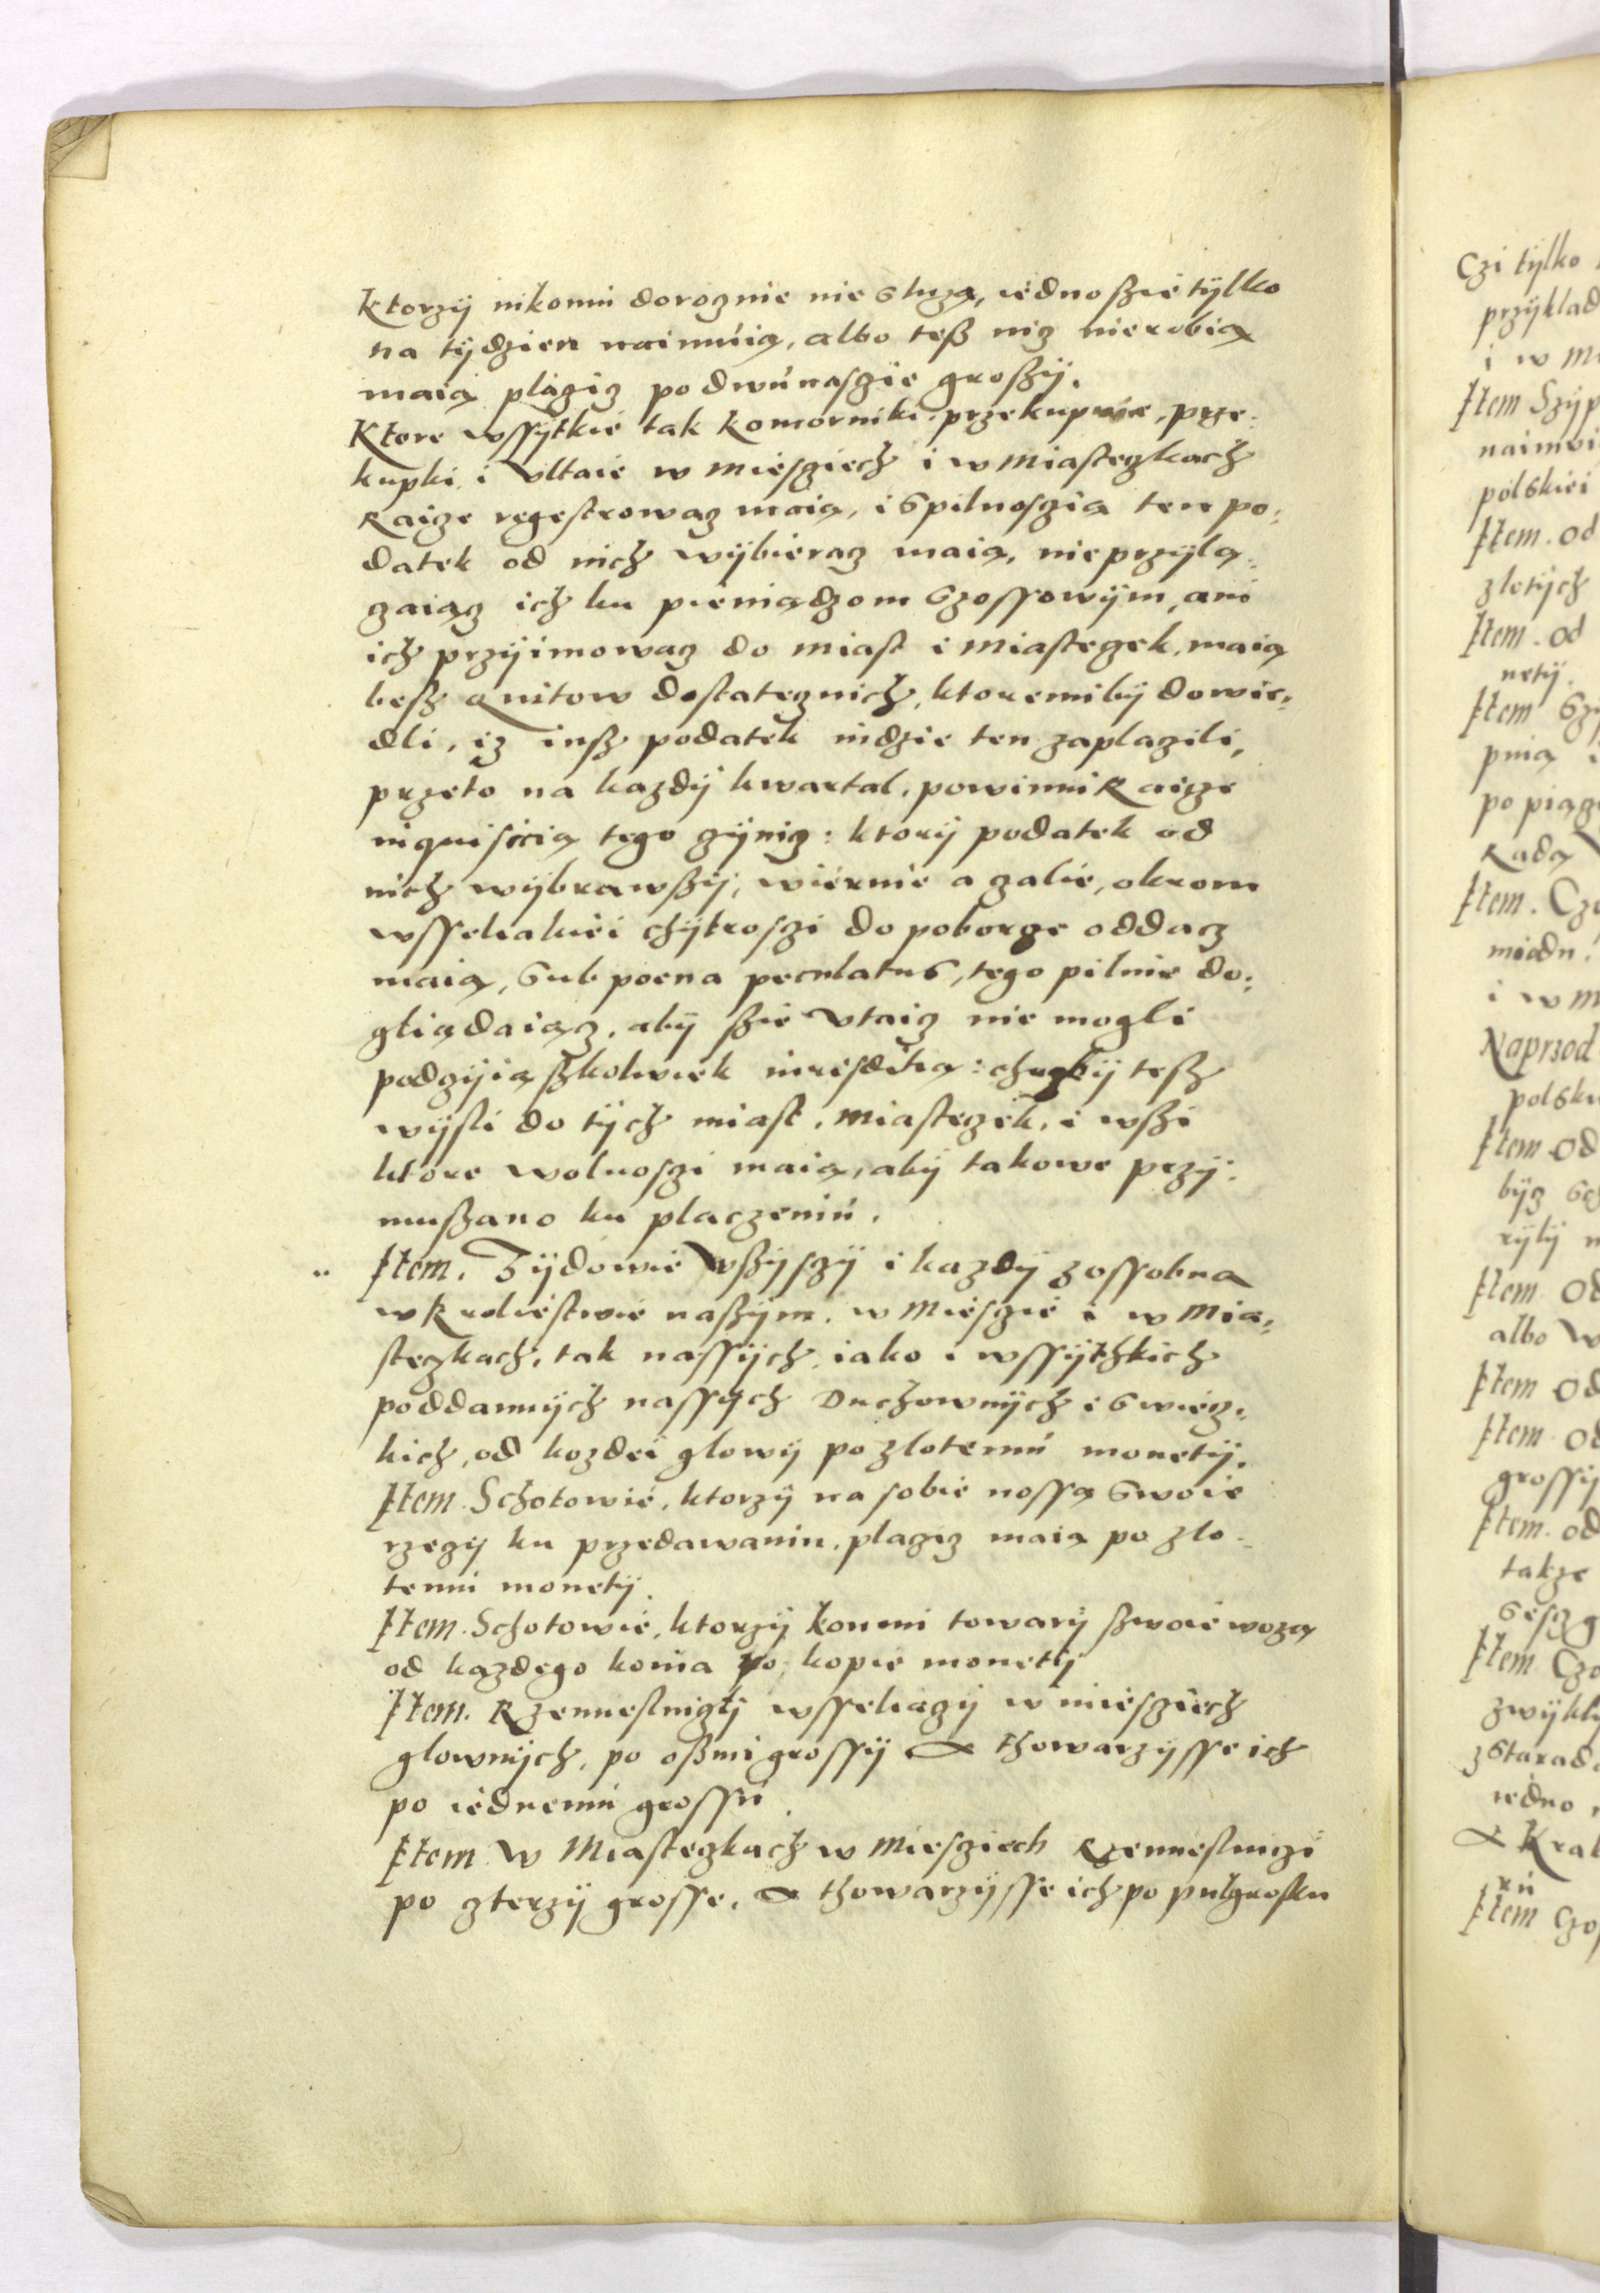 Ktorzÿ nikomu doroznie nie sluza, iedno ßie tÿlko
na tÿdzien naimuią, albo teß niz nierobią
maią plaziz po dwunaszie groszÿ.
Ktore wssÿtkie tak komorniki, przekupnie, prze:
kupki i Vltaie w miesziech i w miastezkach
Raize regestrowaz maią, i s pilnoszią ten po:
datek od nich wÿbieraz maia, nie przÿlą:
zaiąz ich ku pieniądzom szossowÿm, ani
ich przÿimowaz do miast i miastezek, maią
besz quitow dostateznich, ktoremibÿ dowie:
dli, iz iusz podatek indzie ten zaplazili,
przeto na kazdÿ kwartal, powinni Raize
inquisitią tego zÿniz: ktorÿ podatek od
nich wÿbrawszÿ, wiernie a zalie, okrom
wsseliakiei chÿtroszi do poborze oddaz
maią, sub poena peculatus, tego pilnie do:
gliądaiąz, abÿ ßie Vtaiz nie mogli
pod zÿią szkolwiek iurisditią: chozbÿ tesz
wÿsli do tÿch miast, miastezek, i wszi
ktore wolnoszi maią, abÿ takowe przÿ:
muszano ku placzeniu.
Item. Zÿdowie Wszÿszÿ i kazdÿ zossobna
w Krolestwie naszÿm, w mieszie i w mia:
stezkach, tak nassÿch iako i wssÿthkich
poddannÿch nassÿch Duchownÿch i swiez:
kich, od kozdei glowÿ po zlotemu monetÿ.
Item. Schotowie, ktorzÿ na sobie nossą swoie
rzezÿ ku przedawaniu, plaziz maią po zlo:
temu monetÿ.
Item. Schotowie, ktorzÿ konmi towarÿ szwoie wozą
od kazdego konia po kopie monetÿ
Item. Rzemieslnizÿ wsseliazÿ w miesziech
glownÿch, po oßmi grossÿ a thowarzÿsse ich
po iednemu grossu.
Item w Miastezkach w miesziech Rzemieslnizi
po zterzÿ grosse, a thowarzÿsse ich po pulgrosku
Czi tÿlko
przÿklad
i w mi
Item Szÿp
naimni
polskiei
Item. od
zlotÿch
Item. od
netÿ.
Item
pnia
po piąz
Rada
Item. Czo
miodu.
i w m
Naprzod
polski
Item od
bÿz
rÿlÿ
Item Od
albo W
Item Od
Item Od
grossÿ
Item. od
takze
Item Czo
zwÿklÿ
zstarad
iedno
a Krak
ru
Item Czo